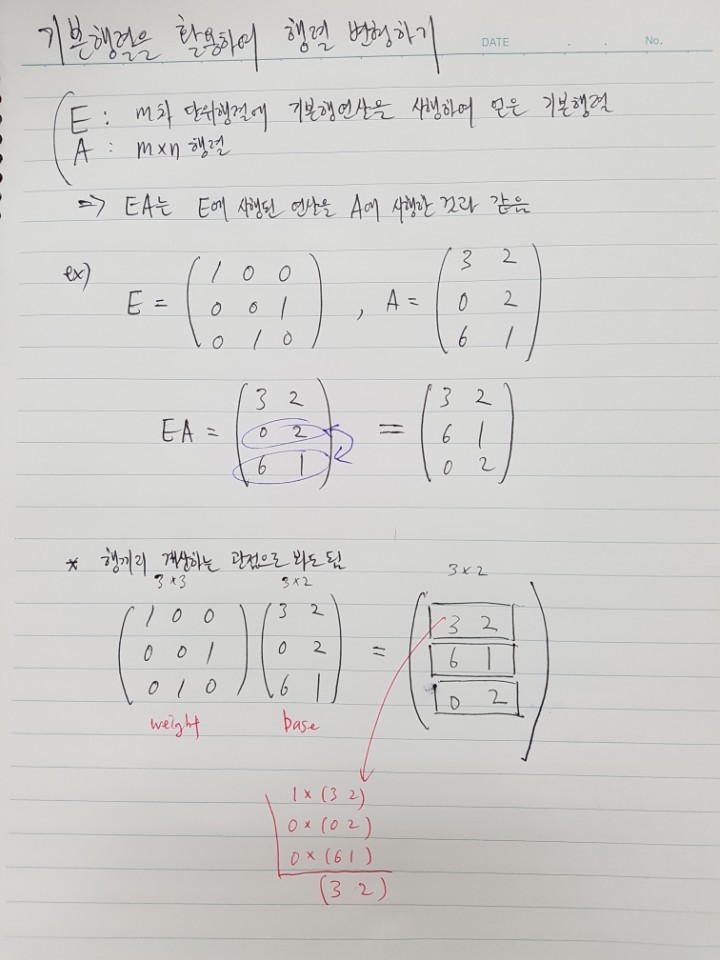 기본행렬을 활용하여 행렬 변형하기
DATE . . No.
E : m차 단위행렬에 기본행연산을 시행하여 얻은 기본행렬
A : m×n 행렬
=> EA는 E에 시행된 연산을 A에 시행한 것과 같음
ex)
1 0 0 3 2
E = 0 0 1 , A = 0 2
0 1 0 6 1
3 2 3 2
EA = 0 2 = 6 1
6 1 0 2
* 행끼리 계산하는 관점으로 봐도 됨
3×3 3×2 3×2
(1 0 0) (3 2) (3 2)
(0 0 1) (0 2) = (6 1)
(0 1 0) (6 1) (0 2)
weight base
1 × (3 2)
0 × (0 2)
0 × (6 1)
(3 2)